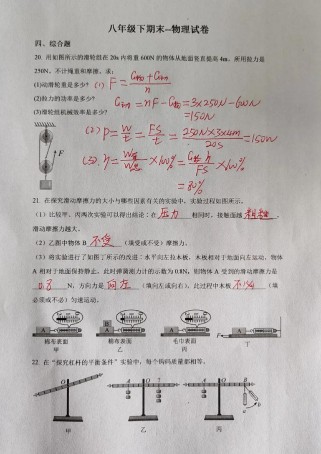 八年级下期末--物理试卷
四、综合题
20. 用如图所示的滑轮组在20s内将重600N的物体从地面竖直提高4m，所用拉力是
250N。不计绳重和摩擦。求：
(1)动滑轮重是多少？ (1) F = (G物+G动)/n
(2)拉力的功率是多少？ G动=nF-G物=3×250N-600N
(3)滑轮组机械效率是多少？ =150N
(2) P=W/t=FS/t=250N×3×4m/20s=150W
(3) η=W有/W总×100%=G物h/FS×100%
=80%
F
21. 在探究滑动摩擦力的大小与哪些因素有关的实验中，实验过程如图所示。
(1) 比较甲、丙两次实验可以得出结论：在 压力 相同时，接触面越 粗糙，
滑动摩擦力越大。
(2) 乙图中物体B 不受 (填受或不受) 摩擦力。
(3) 将实验进行了如图丁所示的改进：水平向左拉木板，木板相对于地面向左运动，物体
A相对于地面保持静止，此时弹簧测力计的示数为0.8N，则物体A受到的滑动摩擦力是
0.8 N，方向为 向左 (填向左或向右)。此过程中木板 不必 (填
必须或不必) 匀速运动。
B
A A A A F
棉布表面 棉布表面 毛巾表面
甲 乙 丙 丁
22. 在“探究杠杆的平衡条件”实验中，每个钩码质量都相等。
O A O B
甲 乙 丙